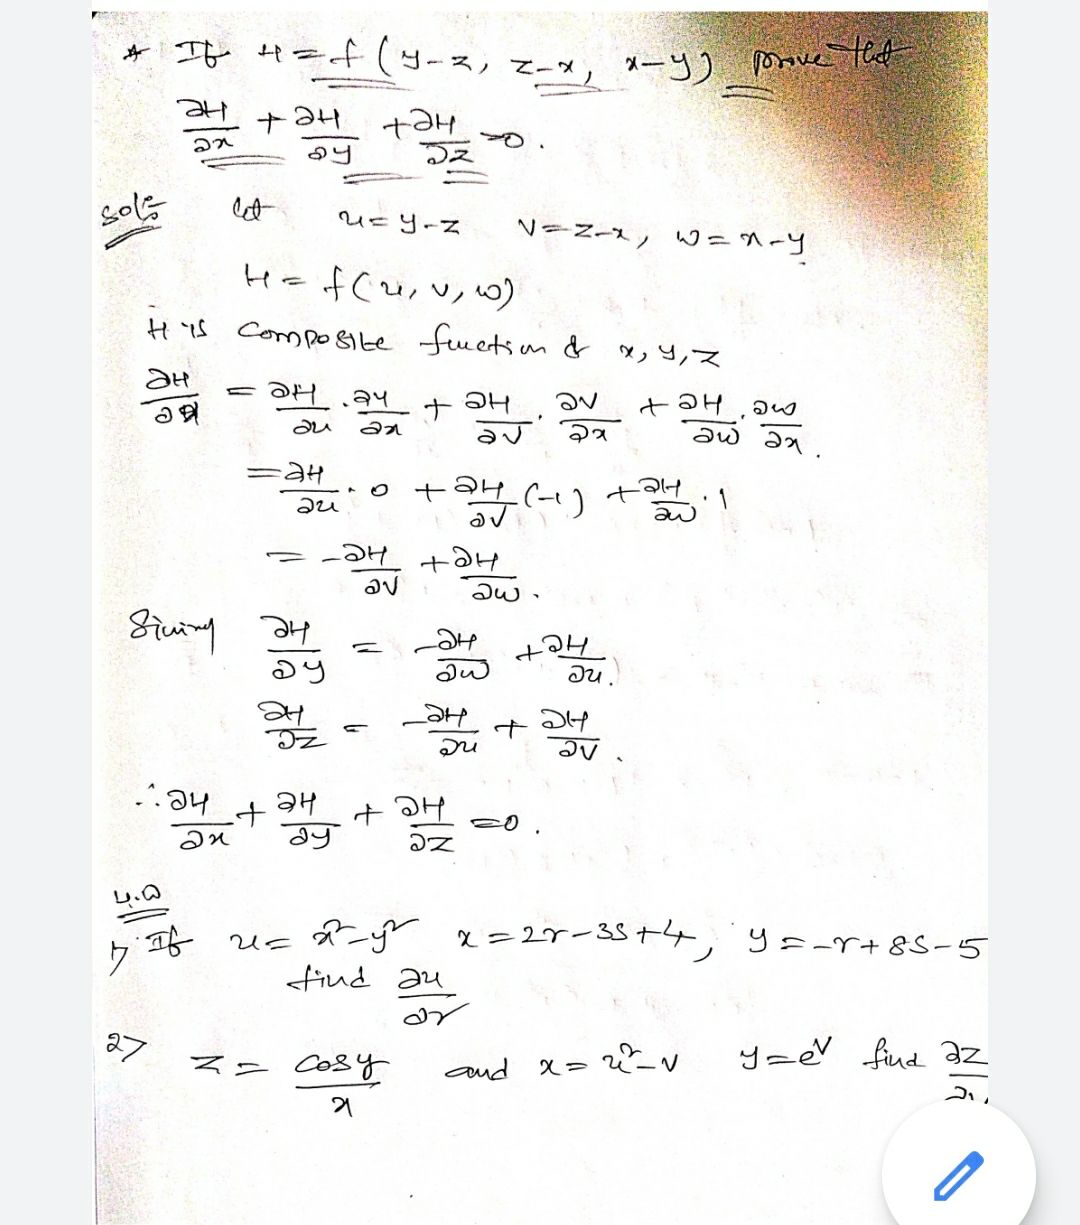 * If H = f(y-z, z-x, x-y) prove that
∂H/∂x + ∂H/∂y + ∂H/∂z = 0.
Sol:- let u = y-z v = z-x, w = x-y
H = f(u, v, w)
H is composite function of x, y, z
∂H/∂x = ∂H/∂u . ∂u/∂x + ∂H/∂v . ∂v/∂x + ∂H/∂w . ∂w/∂x .
= ∂H/∂u . 0 + ∂H/∂v (-1) + ∂H/∂w . 1
= -∂H/∂v + ∂H/∂w .
∂H/∂y = -∂H/∂w + ∂H/∂u .
∂H/∂z = -∂H/∂u + ∂H/∂v .
∴ ∂H/∂x + ∂H/∂y + ∂H/∂z = 0 .
1> If u = x²-y² x = 2r-3s+4, y = -r+8s-5
find ∂u/∂r
2> z = cosy/x and x = u²-v y = e^v find ∂z